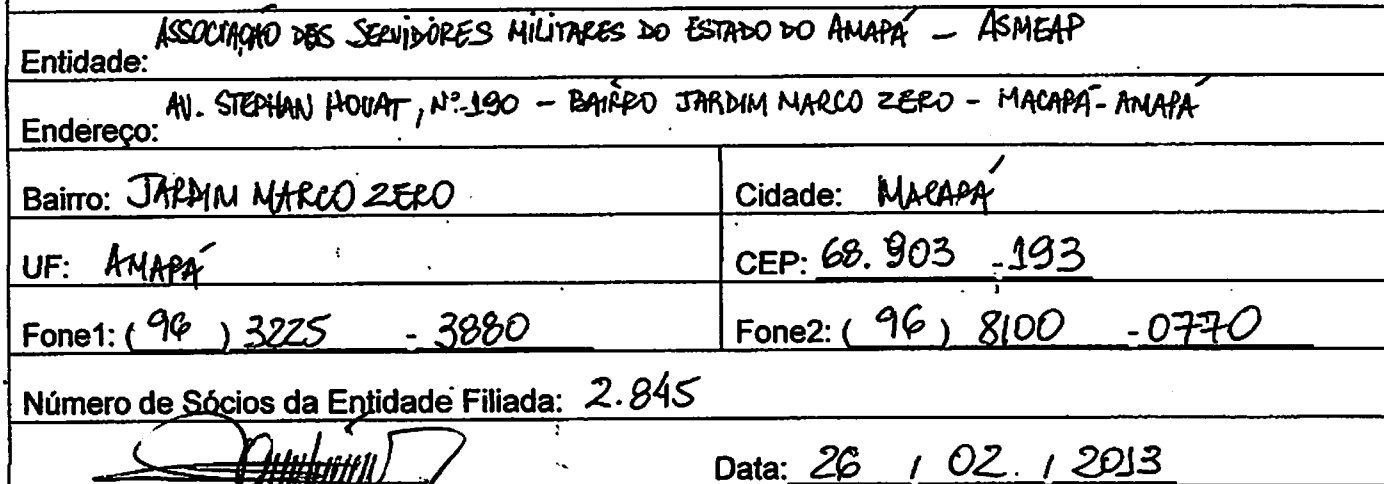 Entidade: ASSOCIAÇÃO DOS SERVIDORES MILITARES DO ESTADO DO AMAPÁ - ASMEAP
Endereço: AV. STEPHAN HOUAT, Nº 190 - BAIRRO JARDIM MARCO ZERO - MACAPÁ - AMAPÁ
Bairro: JARDIM MARCO ZERO Cidade: MACAPÁ
UF: AMAPÁ CEP: 68.903-193
Fone1: (96) 3225 - 3880 Fone2: (96) 8100 - 0770
Número de Sócios da Entidade Filiada: 2.845
Data: 26 / 02. / 2013